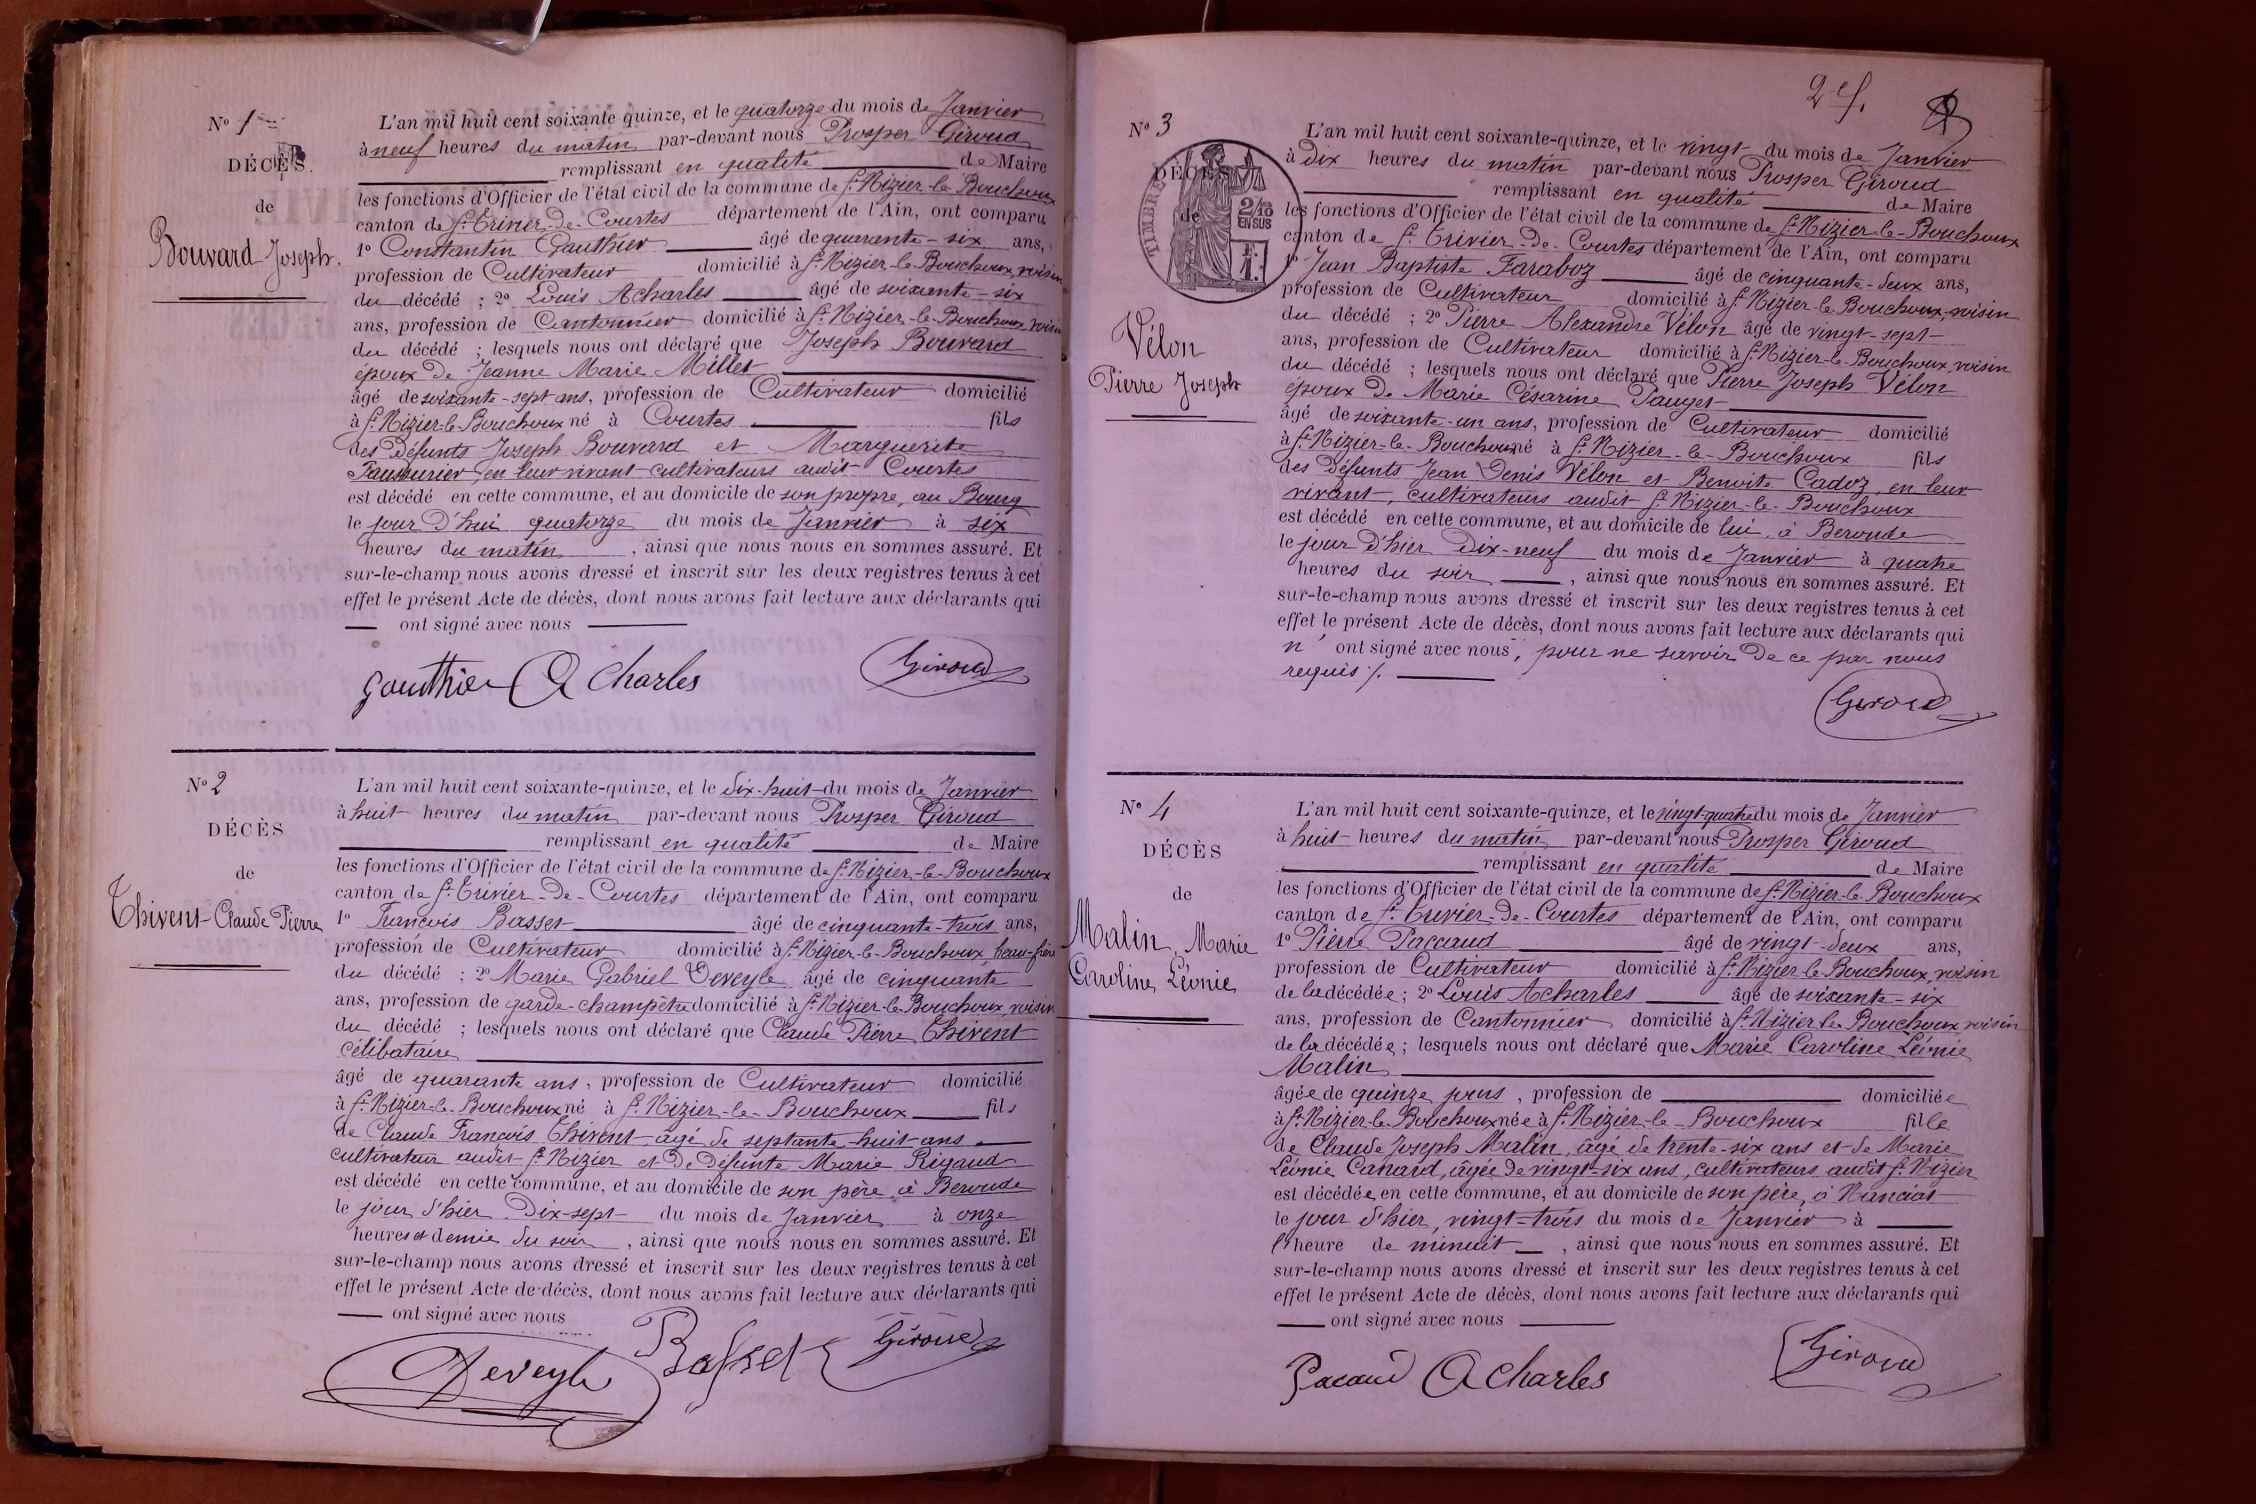 N° 1
DÉCÈS
de
Bouvard Joseph.
L'an mil huit cent soixante quinze, et le quatorze du mois de Janvier
à neuf heures du matin par-devant nous Prosper Giroud
remplissant en qualité de Maire
les fonctions d'Officier de l'état civil de la commune de St Nizier-le-Bouchoux
canton de St Trivier-de-Courtes département de l'Ain, ont comparu
1° Constantin Gauthier âgé de quarante-six ans,
profession de Cultivateur domicilié à St Nizier-le-Bouchoux, voisin
du décédé ; 2° Louis Acharles âgé de soixante-six
ans, profession de Cantonnier domicilié à St Nizier-le-Bouchoux, voisin
du décédé ; lesquels nous ont déclaré que Joseph Bouvard
époux de Jeanne Marie Millet
âgé de soixante-sept ans, profession de Cultivateur domicilié
à St Nizier-le-Bouchoux né à Courtes fils
des Défunts Joseph Bouvard et Marguerite
en leur vivant cultivateurs audit Courtes
est décédé en cette commune, et au domicile de son propre, au Bourg
le jour d'hui quatorze du mois de Janvier à six
heures du matin , ainsi que nous nous en sommes assuré. Et
sur-le-champ nous avons dressé et inscrit sur les deux registres tenus à cet
effet le présent Acte de décès, dont nous avons fait lecture aux déclarants qui
ont signé avec nous
Gauthier Acharles Giroud
N° 2
DÉCÈS
de
Thivent Claude Pierre
L'an mil huit cent soixante-quinze, et le dix-huit du mois de Janvier
à huit heures du matin par-devant nous Prosper Giroud
remplissant en qualité de Maire
les fonctions d'Officier de l'état civil de la commune de St Nizier-le-Bouchoux
canton de St Trivier-de-Courtes département de l'Ain, ont comparu
1° François Basset âgé de cinquante-trois ans,
profession de Cultivateur domicilié à St Nizier-le-Bouchoux, beau-frère
du décédé ; 2° Marie Gabriel Deveyle âgé de cinquante
ans, profession de garde-champêtre domicilié à St Nizier-le-Bouchoux, voisin
du décédé ; lesquels nous ont déclaré que Claude Pierre Thivent
célibataire
âgé de quarante ans, profession de Cultivateur domicilié
à St Nizier-le-Bouchoux né à St Nizier-le-Bouchoux fils
de Claude François Thivent âgé de septante-huit ans
cultivateur audit St Nizier et de défunte Marie Rigaud
est décédé en cette commune, et au domicile de son père à Beroude
le jour d'hier Dix-sept du mois de Janvier à onze
heures et demie du soir , ainsi que nous nous en sommes assuré. Et
sur-le-champ nous avons dressé et inscrit sur les deux registres tenus à cet
effet le présent Acte de décès, dont nous avons fait lecture aux déclarants qui
ont signé avec nous
Deveyle Basset Giroud
2 ef.
N° 3
DÉCÈS
de
TIMBRE
2/10
EN SUS
Vélon
Pierre Joseph
L'an mil huit cent soixante-quinze, et le vingt du mois de Janvier
à dix heures du matin par-devant nous Prosper Giroud
remplissant en qualité de Maire
les fonctions d'Officier de l'état civil de la commune de St Nizier-le-Bouchoux
canton de St Trivier-de-Courtes département de l'Ain, ont comparu
1° Jean Baptiste Faraboz âgé de cinquante-deux ans,
profession de Cultivateur domicilié à St Nizier-le-Bouchoux, voisin
du décédé ; 2° Pierre Alexandre Vélon âgé de vingt-sept
ans, profession de Cultivateur domicilié à St Nizier-le-Bouchoux, voisin
du décédé ; lesquels nous ont déclaré que Pierre Joseph Vélon
époux de Marie Césarine Pauget
âgé de soixante-un ans, profession de Cultivateur domicilié
à St Nizier-le-Bouchoux né à St Nizier-le-Bouchoux fils
des Défunts Jean Denis Vélon et Benoite Cadoz, en leur
vivant, cultivateurs audit St Nizier-le-Bouchoux
est décédé en cette commune, et au domicile de lui, à Beroude
le jour d'hier Dix-neuf du mois de Janvier à quatre
heures du soir , ainsi que nous nous en sommes assuré. Et
sur-le-champ nous avons dressé et inscrit sur les deux registres tenus à cet
effet le présent Acte de décès, dont nous avons fait lecture aux déclarants qui
n' ont signé avec nous, pour ne savoir de ce par nous
requis ./.
Giroud
N° 4
DÉCÈS
de
Malin, Marie
Caroline, Léonie
L'an mil huit cent soixante-quinze, et le vingt-quatre du mois de Janvier
à huit heures du matin par-devant nous Prosper Giroud
remplissant en qualité de Maire
les fonctions d'Officier de l'état civil de la commune de St Nizier-le-Bouchoux
canton de St Trivier-de-Courtes département de l'Ain, ont comparu
1° Pierre Paccaud âgé de vingt-deux ans,
profession de Cultivateur domicilié à St Nizier-le-Bouchoux, voisin
de la décédée ; 2° Louis Acharles âgé de soixante-six
ans, profession de Cantonnier domicilié à St Nizier-le-Bouchoux, voisin
de la décédée ; lesquels nous ont déclaré que Marie Caroline Léonie
Malin
âgée de quinze jours , profession de domiciliée
à St Nizier-le-Bouchoux née à St Nizier-le-Bouchoux fille
de Claude Joseph Malin, âgé de trente-six ans et de Marie
Léonie Canard, âgée de vingt-six ans, cultivateurs audit St Nizier
est décédée en cette commune, et au domicile de son père, à Nanciat
le jour d'hier, vingt-trois du mois de Janvier à
l'heure de minuit , ainsi que nous nous en sommes assuré. Et
sur-le-champ nous avons dressé et inscrit sur les deux registres tenus à cet
effet le présent Acte de décès, dont nous avons fait lecture aux déclarants qui
ont signé avec nous
Pacaud Acharles Giroud